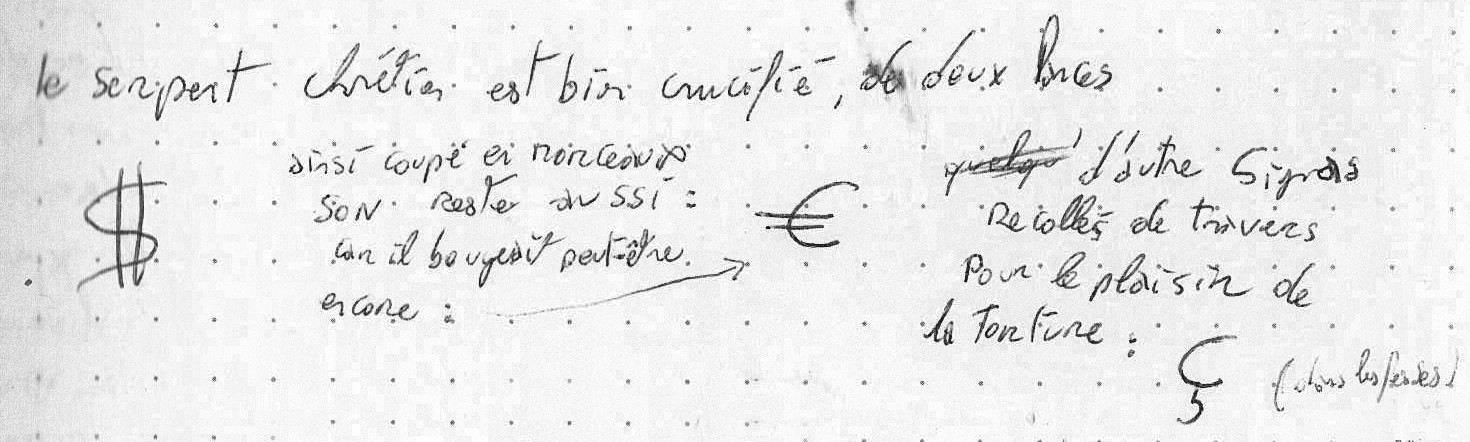 le serpent chrétien est bien crucifié, de deux
$
ainsi coupé en morceaux
son reste aussi :
car il bougeait peut-être
encore :
€
d'autre signes
recollés de travers
Pour le plaisir de
la torture :
ç
(dans les fesses)